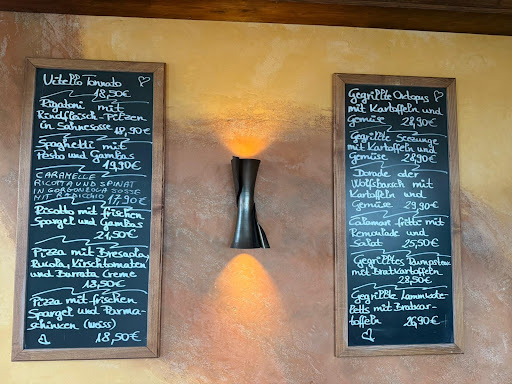 Vitello Tonnato
18,50€
Rigatoni mit
Rindfleisch-Pilzen
in Sahnesosse 18,90€
Spaghetti mit
Pesto und Gambas
19,90€
CARAMELLE
RICOTTA UND SPINAT
IN GORGONZOLA SOSSE
MIT RADICCHIO 17,90€
Risotto mit frischen
Spargel und Gambas
21,50€
Pizza mit Bresaola,
Rucola, Kirschtomaten
und Burrata Creme
18,50€
Pizza mit frischen
Spargel und Parma-
schinken (weiss)
18,50€
Gegrillte Octopus
mit Kartoffeln und
Gemüse 28,90€
Gegrillte Seezunge
mit Kartoffeln und
Gemüse 28,90€
Dorade oder
Wolfsbarsch mit
Kartoffeln und
Gemüse 29,90€
Calamari fritte mit
Remoulade und
Salat 25,50€
Gegrilltes Rumpsteak
mit Bratkartoffeln
28,50€
Gegrillte Lammkote-
letts mit Bratkar-
toffeln 26,90€